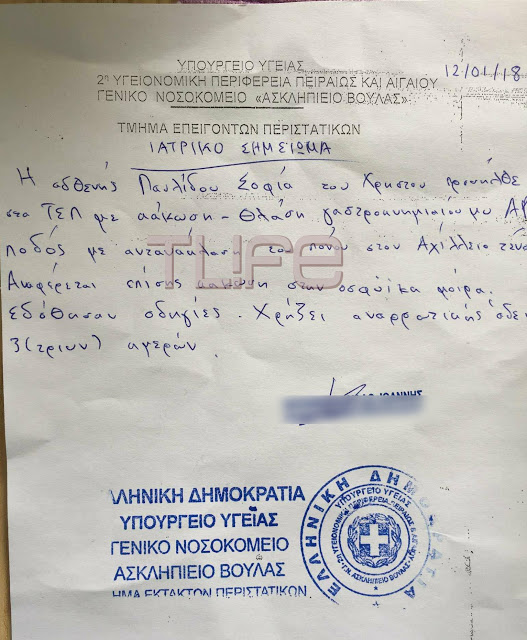 ΥΠΟΥΡΓΕΙΟ ΥΓΕΙΑΣ
12/01/18
2η ΥΓΕΙΟΝΟΜΙΚΗ ΠΕΡΙΦΕΡΕΙΑ ΠΕΙΡΑΙΩΣ ΚΑΙ ΑΙΓΑΙΟΥ
ΓΕΝΙΚΟ ΝΟΣΟΚΟΜΕΙΟ «ΑΣΚΛΗΠΙΕΙΟ ΒΟΥΛΑΣ»
ΤΜΗΜΑ ΕΠΕΙΓΟΝΤΩΝ ΠΕΡΙΣΤΑΤΙΚΩΝ
ΙΑΤΡΙΚΟ ΣΗΜΕΙΩΜΑ
Η ασθενής Παυλίδου Σοφία του Χρήστου προσήλθε
στα ΤΕΠ με κάκωση - θλάση γαστροκνημιαίου μυ ΑΡ
ποδός με αντανάκλαση του πόνου στον Αχίλλειο τένο
TLIFE
Αναφέρεται επίσης κάκωση στην οσφυϊκα μοίρα.
Εδόθησαν οδηγίες. Χρήζει αναρρωτικής άδει
3(τριων) ημερών
ΙΩΑΝΝΗΣ
ΛΗΝΙΚΗ ΔΗΜΟΚΡΑΤΙΑ
ΥΠΟΥΡΓΕΙΟ ΥΓΕΙΑΣ
ΓΕΝΙΚΟ ΝΟΣΟΚΟΜΕΙΟ
ΑΣΚΛΗΠΙΕΙΟ ΒΟΥΛΑΣ
ΗΜΑ ΕΚΤΑΚΤΩΝ ΠΕΡΙΣΤΑΤΙΚΩΝ
ΕΛΛΗΝΙΚΗ ΔΗΜΟΚΡΑΤΙΑ
ΥΠΟΥΡΓΕΙΟ ΥΓΕΙΑΣ